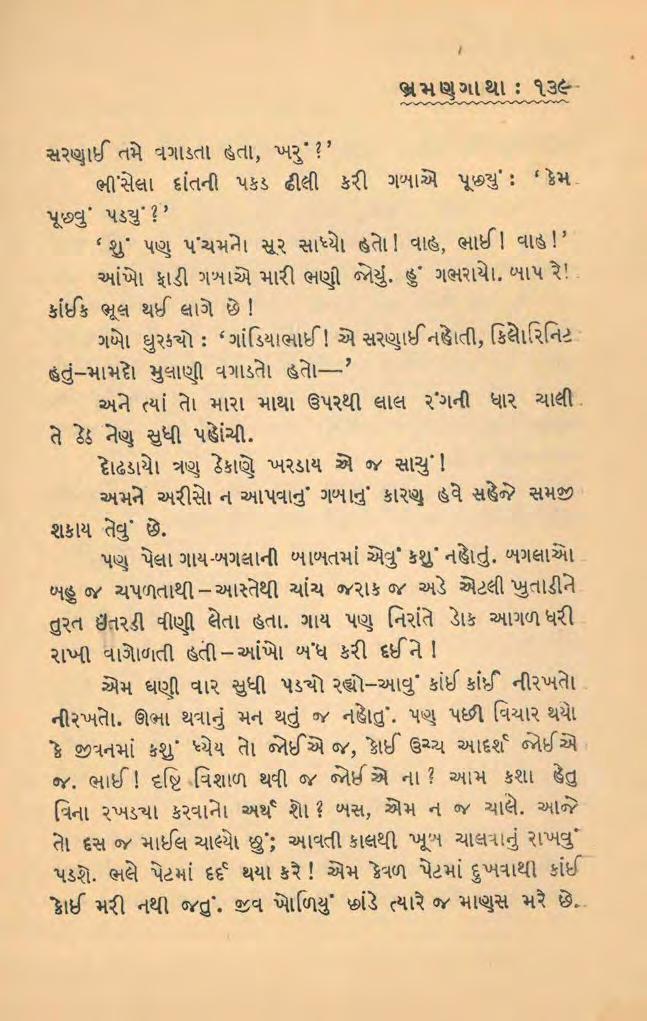 ભ્રમણગાથા : ૧૩૯
સરણાઈ તમે વગાડતા હતા, ખરું ?’
ભીંસેલા દાંતની પકડ ઢીલી કરી ગબાએ પૂછ્યું : ‘ કેમ
પૂછવું પડ્યું ?’
‘ શું પણ પંચમનો સૂર સાધ્યો હતો ! વાહ, ભાઈ ! વાહ !’
આંખો ફાડી ગબાએ મારી ભણી જોયું. હું ગભરાયો. બાપ રે !
કાંઈક ભૂલ થઈ લાગે છે !
ગબો ઘુરક્યો : ‘ગાંડિયાભાઈ ! એ સરણાઈ નહોતી, કિલોરિનિટ
હતું–મામદો મુલાણી વગાડતો હતો—’
અને ત્યાં તો મારા માથા ઉપરથી લાલ રંગની ધાર ચાલી
તે ઠેઠ નેણ સુધી પહોંચી.
દોઢડાયો ત્રણ ઠેકાણે ખરડાય એ જ સાચું !
અમને અરીસો ન આપવાનું ગબાનું કારણ હવે સહેજે સમજી
શકાય તેવું છે.
પણ પેલા ગાય-બગલાની બાબતમાં એવું કશું નહોતું. બગલાઓ
બહુ જ ચપળતાથી – આસ્તેથી ચાંચ જરાક જ અડે એટલી ખુતાડીને
તુરત ઈતરડી વીણી લેતા હતા. ગાય પણ નિરાંતે ડોક આગળ ધરી
રાખી વાગોળતી હતી – આંખો બંધ કરી દઈને !
એમ ઘણી વાર સુધી પડ્યો રહ્યો–આવું કાંઈ કાંઈ નીરખતો
નીરખતો. ઊભા થવાનું મન થતું જ નહોતું. પણ પછી વિચાર થયો
કે જીવનમાં કશું ધ્યેય તો જોઈએ જ, કોઈ ઉચ્ચ આદર્શ જોઈએ
જ. ભાઈ ! દૃષ્ટિ વિશાળ થવી જ જોઈએ ના ? આમ કશા હેતુ
વિના રખડ્યા કરવાનો અર્થ શો ? બસ, એમ ન જ ચાલે. આજે
તો દસ જ માઈલ ચાલ્યો છું; આવતી કાલથી ખૂબ ચાલવાનું રાખવું
પડશે. ભલે પેટમાં દર્દ થયા કરે ! એમ કેવળ પેટમાં દુખવાથી કાંઈ
કોઈ મરી નથી જતું. જીવ ખોળિયું છાંડે ત્યારે જ માણસ મરે છે.